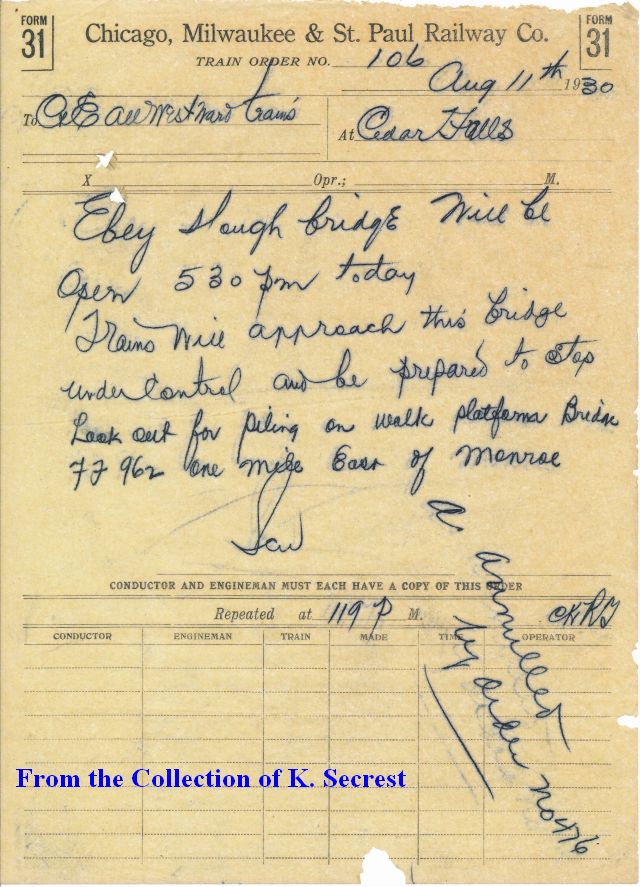 FORM 31
Chicago, Milwaukee & St. Paul Railway Co.
FORM 31
TRAIN ORDER NO. 106
Aug 11th 1930
To C&E All Westward trains
At Cedar Falls
X Opr.; M.
Ebey Slough bridge Will be
Open 530 pm today
Trains Will approach this bridge
under Control and be prepared to stop
Look out for piling on walk platforms Bridge
FF 962 one mile East of Monroe
CONDUCTOR AND ENGINEMAN MUST EACH HAVE A COPY OF THIS ORDER
Repeated at 119 P M.
CONDUCTOR ENGINEMAN TRAIN MADE TIME OPERATOR
annulled
by order no 476
From the Collection of K. Secrest